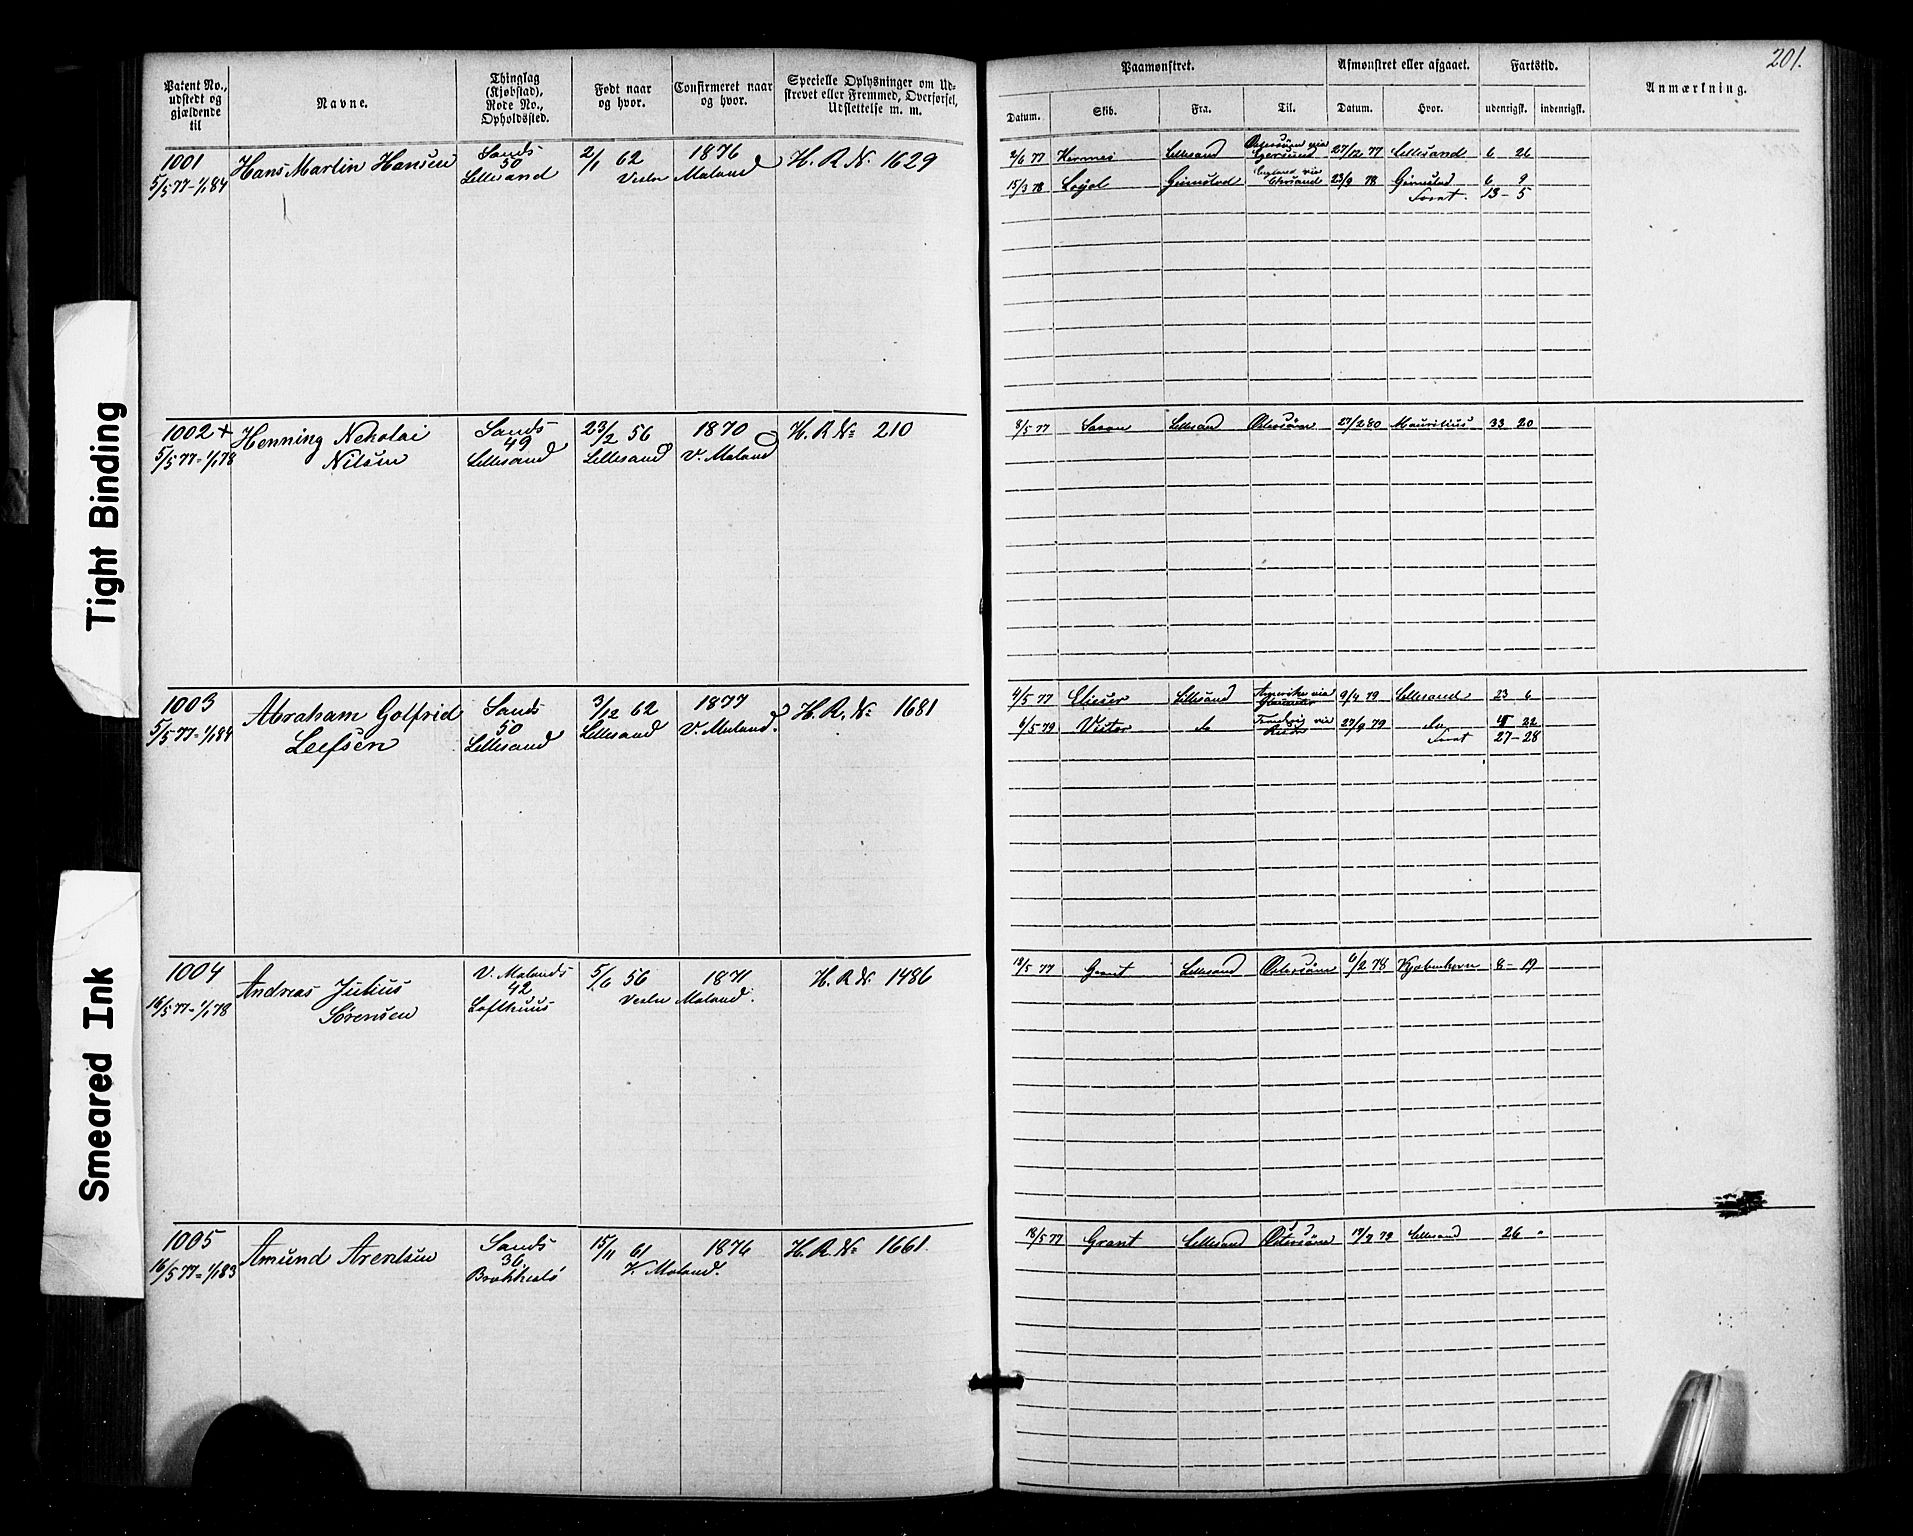 201.
Patent No., udstedt og gjældende til
Navne.
Thinglag (Kjøbstad), Rode No., Opholdssted.
Født naar og hvor.
Confirmeret naar og hvor.
Specielle Oplysninger om Udskrevet eller Fremmed, Overførsel, Udslettelse m. m.
Paamønstret.
Afmønstret eller afgaaet.
Fartstid.
Anmærkning.
Datum. Skib. Fra. Til. Datum. Hvor. udenrigsk. indenrigsk.
1001 Hans Martin Hansen Sands 2/1 62 1876 H. R. No. 1629
5/5 77-1/1 84 50 Vestre Moland
Lillesand
2/6 77 Hermes Lillesand Østersøen via 27/12 77 Lillesand 6 26
15/3 78 Loyal Grimstad England via 23/9 78 Grimstad 6 9
13-5
1002+ Henning Nekolai Sands 23/2 56 1870 H. R. No. 210
5/5 77-1/1 78 Nilsen 49 Lillesand Lillesand V. Moland
8/5 77 Lillesand Østersøen 27/2 80 Mauritius 33 20
1003 Abraham Gotfried Sands 3/12 62 1877 H. R. No. 1681
5/5 77-1/1 84 Leifsen 50 Lillesand Lillesand V. Moland.
4/5 77 Eliezer Lillesand Amerika via 9/4 79 Lillesand 23 6
6/5 79 Victor do 27/9 79 do 4 22
27-28
1004 Andreas Julius V. Molands 5/6 56 1871 H. R. No. 1486
16/5 77-1/1 78 Sørensen 42 Vestre Moland.
Lofthuus
18/5 77 Grant Lillesand Østersøen 6/2 78 Kjøbenhavn 8-19
1005 Amund Arentsen Sands 15/11 61 1876 H. R. No. 1661.
16/5 77-1/1 83 36 V. Moland.
Brækkestø
18/5 77 Grant Lillesand Østersøen 17/7 79 Lillesand 26 "
Tight Binding
Smeared Ink